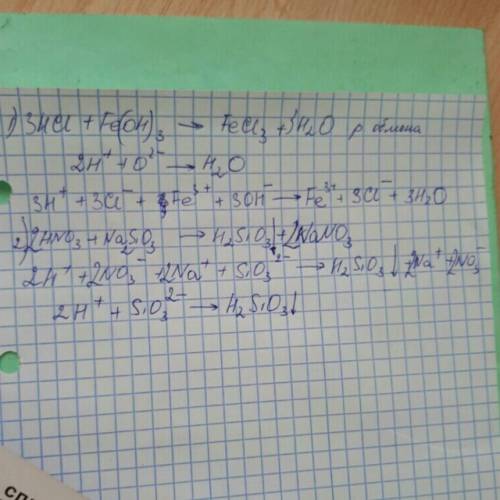 1) 3HCl + Fe(OH)₃ → FeCl₃ + 3H₂O р. обмена
2H⁺ + O²⁻ → H₂O
3H⁺ + 3Cl⁻ + Fe³⁺ + 3OH⁻ → Fe³⁺ + 3Cl⁻ + 3H₂O
2) 2HNO₃ + Na₂SiO₃ → H₂SiO₃↓ + 2NaNO₃
2H⁺ + 2NO₃⁻ + 2Na⁺ + SiO₃²⁻ → H₂SiO₃↓ + 2Na⁺ + 2NO₃⁻
2H⁺ + SiO₃²⁻ → H₂SiO₃↓